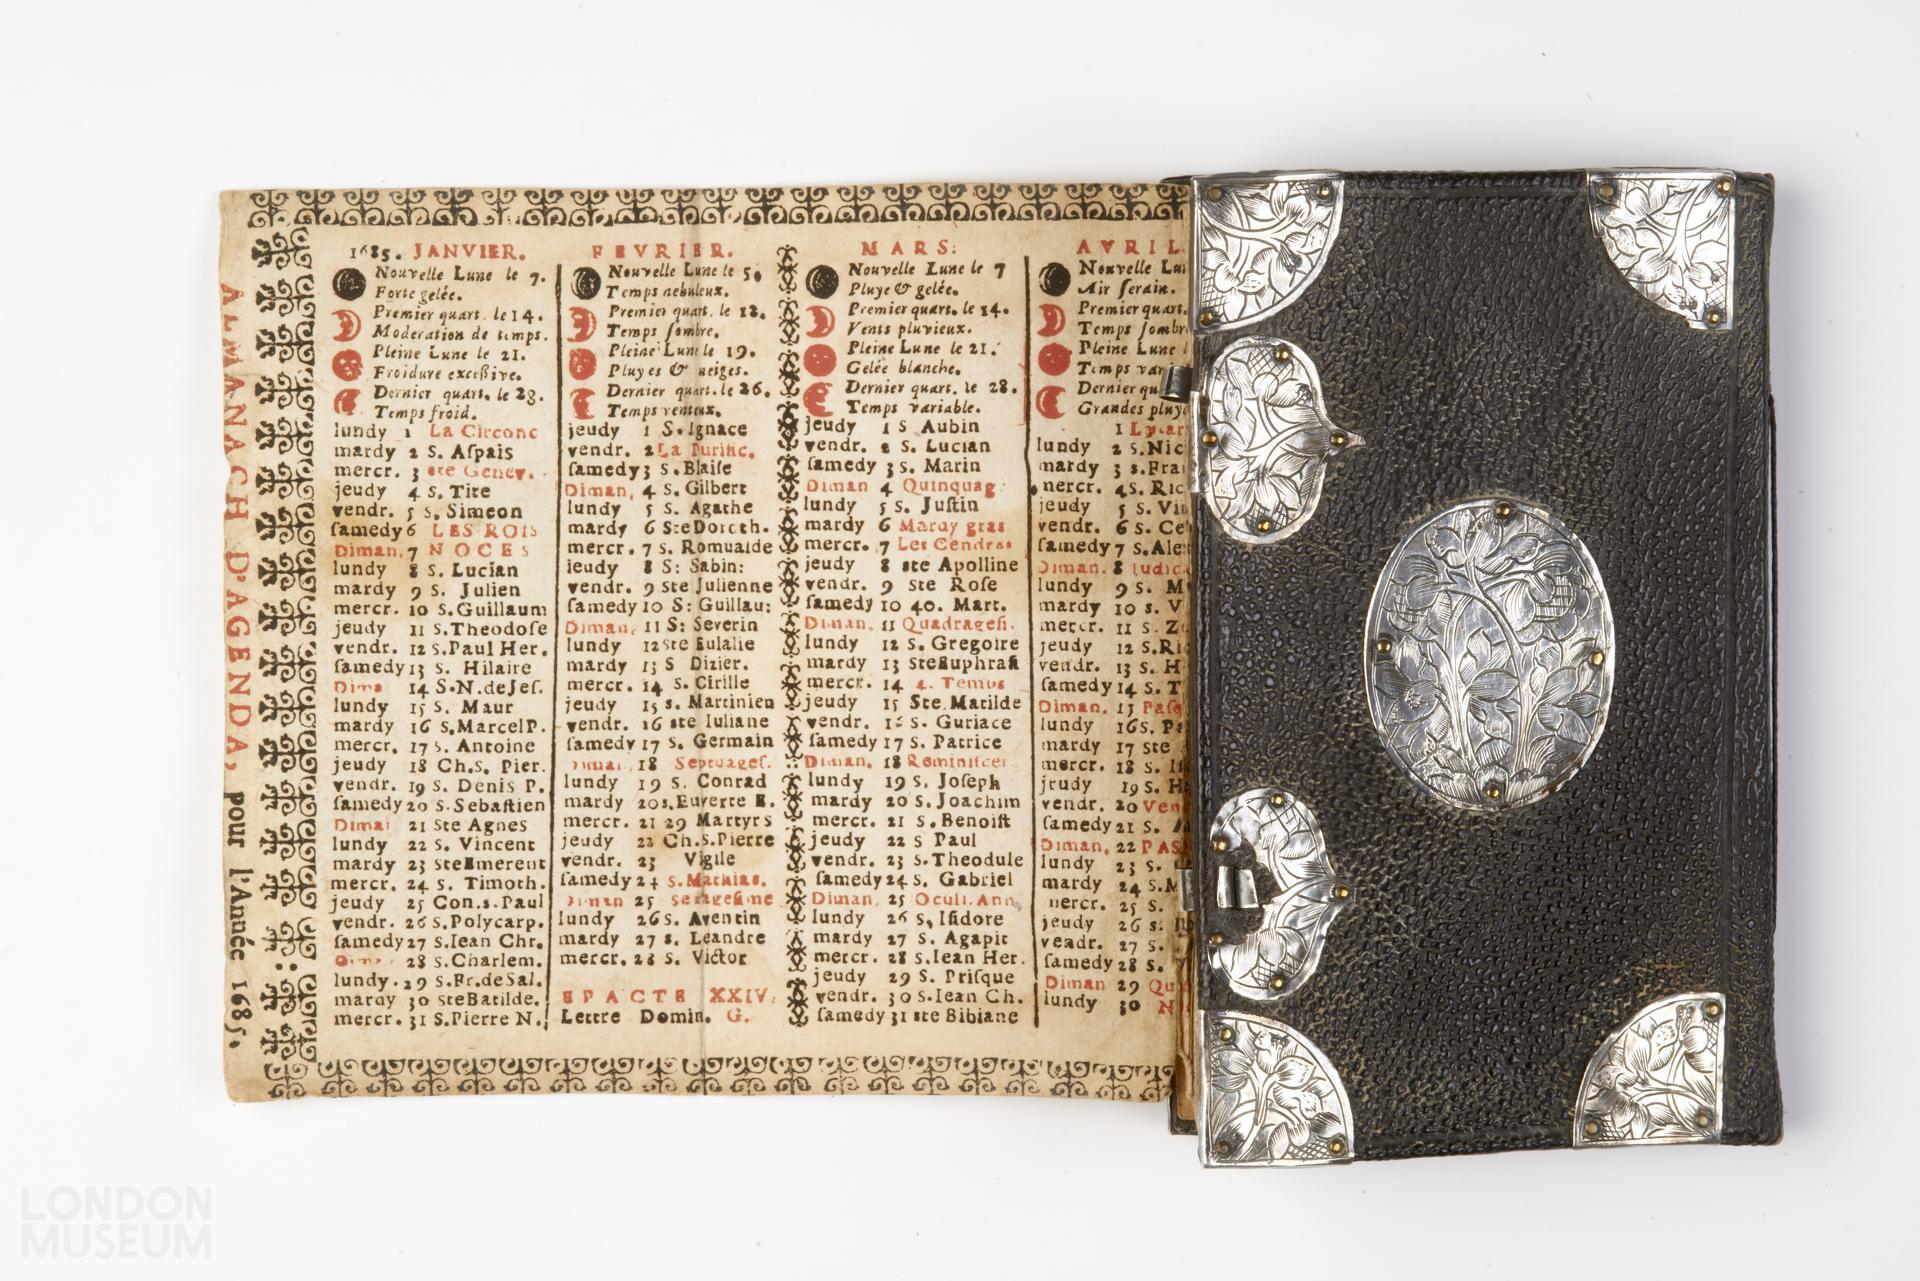 ALMANACH D'AGENDA, pour l'Année 1685.
1685. JANVIER.
Nouvelle Lune le 7.
Forte gelée.
Premier quart. le 14.
Moderation de temps.
Pleine Lune le 21.
Froidure exceßive.
Dernier quart. le 28.
Temps froid.
lundy 1 La Circonc
mardy 2 S. Aſpais
mercr. 3 ste Genev.
jeudy 4 S. Tite
vendr. 5 S. Simeon
ſamedy 6 LES ROIS
Diman. 7 NOCES
lundy 8 S. Lucian
mardy 9 S. Julien
mercr. 10 S. Guillaum
jeudy 11 S. Theodoſe
vendr. 12 S. Paul Her.
ſamedy 13 S. Hilaire
Dima 14 S. N. de Jeſ.
lundy 15 S. Maur
mardy 16 S. Marcel P.
mercr. 17 S. Antoine
jeudy 18 Ch. S. Pier.
vendr. 19 S. Denis P.
ſamedy 20 S. Sebaſtien
Dimai 21 Ste Agnes
lundy 22 S. Vincent
mardy 23 ste Emerent
mercr. 24 S. Timoth.
jeudy 25 Con. s. Paul
vendr. 26 S. Polycarp.
ſamedy 27 S. Iean Chr.
28 S. Charlem.
lundy. 29 S. Fr. de Sal.
mardy 30 ste Batilde.
mercr. 31 S. Pierre N.
FEVRIER.
Nouvelle Lune le 5.
Temps nebuleux.
Premier quart. le 12.
Temps ſombre.
Pleine Lune le 19.
Pluyes & neiges.
Dernier quart. le 26.
Temps venteux.
jeudy 1 S. Ignace
vendr. 2 La Purific.
ſamedy 3 S. Blaiſe
Diman. 4 S. Gilbert
lundy 5 S. Agathe
mardy 6 Ste Doroth.
mercr. 7 S. Romualde
jeudy 8 S: Sabin:
vendr. 9 Ste Julienne
ſamedy 10 S: Guillau:
Diman. 11 S: Severin
lundy 12 ste Eulalie
mardy 13 S Dizier.
mercr. 14 S. Cirille
jeudy 15 s. Martinien
vendr. 16 ste Iuliane
ſamedy 17 S. Germain
Diman. 18 Septuageſ.
lundy 19 S. Conrad
mardy 20 s. Euverte E.
mercr. 21 29 Martyrs
jeudy 22 Ch. S. Pierre
vendr. 23 Vigile
ſamedy 24 S. Mathias.
Diman 25 Sexageſime
lundy 26 S. Aventin
mardy 27 s. Leandre
mercr. 28 S. Victor
EPACTE XXIV.
Lettre Domin. G.
MARS:
Nouvelle Lune le 7
Pluye & gelée.
Premier quart. le 14.
Vents pluvieux.
Pleine Lune le 21.
Gelée blanche.
Dernier quart. le 28.
Temps variable.
jeudy 1 S Aubin
vendr. 2 S. Lucian
ſamedy 3 S. Marin
Diman 4 Quinquag
lundy 5 S. Juſtin
mardy 6 Mardy gras
mercr. 7 Les Cendres
jeudy 8 ste Apolline
vendr. 9 ste Roſe
ſamedy 10 40. Mart.
Diman. 11 Quadrageſi.
lundy 12 S. Gregoire
mardy 13 Ste Euphraſi
mercr. 14 4. Temps
jeudy 15 Ste. Matilde
vendr. 16 S. Guriace
ſamedy 17 S. Patrice
Diman. 18 Reminiſcer.
lundy 19 S. Joſeph
mardy 20 S. Joachim
mercr. 21 S. Benoiſt
jeudy 22 S Paul
vendr. 23 S. Theodule
ſamedy 24 S. Gabriel
Diman. 25 Oculi. Ann.
lundy 26 S. Iſidore
mardy 27 S. Agapit
mercr. 28 S. Iean Her.
jeudy 29 S. Priſque
vendr. 30 S. Iean Ch.
ſamedy 31 ste Bibiane
AVRIL.
Nouvelle Lu
Air ſerain.
Premier quart.
Temps ſombr
Pleine Lune
Temps var
Dernier qu
Grandes pluy
1
lundy 2 S. Nic
mardy 3 s. Fra
mercr. 4 S. Ric
jeudy 5 S. Vi
vendr. 6 S. Ce
ſamedy 7 S. Ale
Diman. 8 Iudic
lundy 9 S. M
mardy 10 s. V
mercr. 11 S. Z
jeudy 12 S. Ri
vendr. 13 S. H
ſamedy 14 S. T
Diman. 15 Paſ
lundy 16 S. Pa
mardy 17 ste
mercr. 18 S. I
jeudy 19 S. H
vendr. 20 Ven
ſamedy 21 S. A
Diman. 22 PAS
lundy 23 S.
mardy 24 S. M
mercr. 25 S.
jeudy 26 s.
vendr. 27 S.
ſamedy 28 S.
Diman 29 Qu
lundy 30
LONDON
MUSEUM